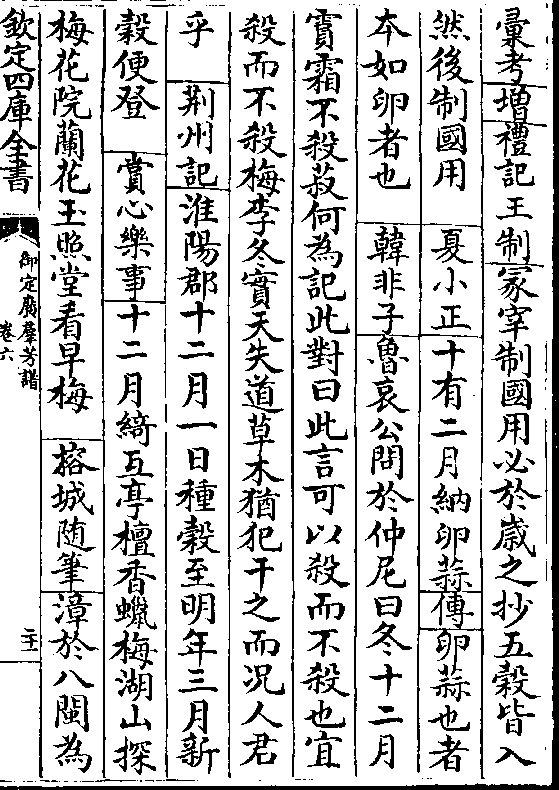 彚考增禮記王制冢宰制國用必於歲之抄五穀皆入
然後制國用　夏小正十有二月納卵蒜傳卵蒜也者
本如卵者也　韓非子魯哀公問於仲尼曰冬十二月
霣霜不殺菽何為記此對曰此言可以殺而不殺也宜
殺而不殺梅李冬實天失道草木猶犯干之而况人君
乎　荆州記淮陽郡十二月一日種穀至明年三月新
穀便登　賞心樂事十二月綺互亭檀香蠟梅湖山探
梅花院蘭花玉照堂看早梅　榕城随筆漳於八閩為
欽定四庫全書
御定廣羣芳譜
卷六
二十一